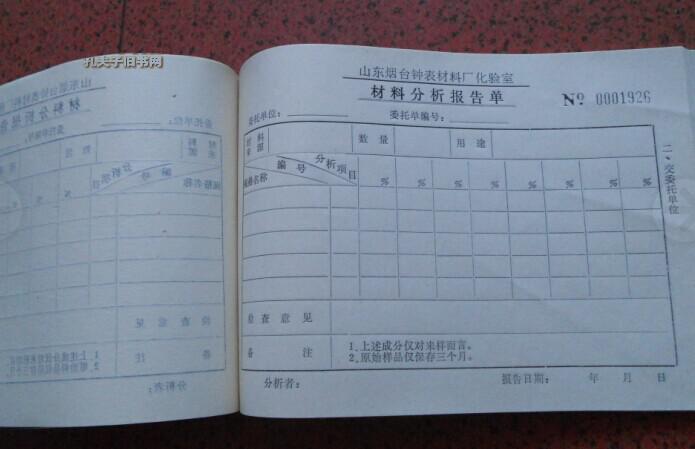 孔夫子旧书网
山东烟台钟表材料厂化验室
材料分析报告单
№ 0001926
委托单位: 委托单编号:
材料来源 数量 用途
分析项目
编号
规格名称
% % % % % % % %
检查意见
备注
1.上述成分仅对来样而言。
2.原始样品仅保存三个月。
分析者: 报告日期: 年 月 日
二、交委托单位